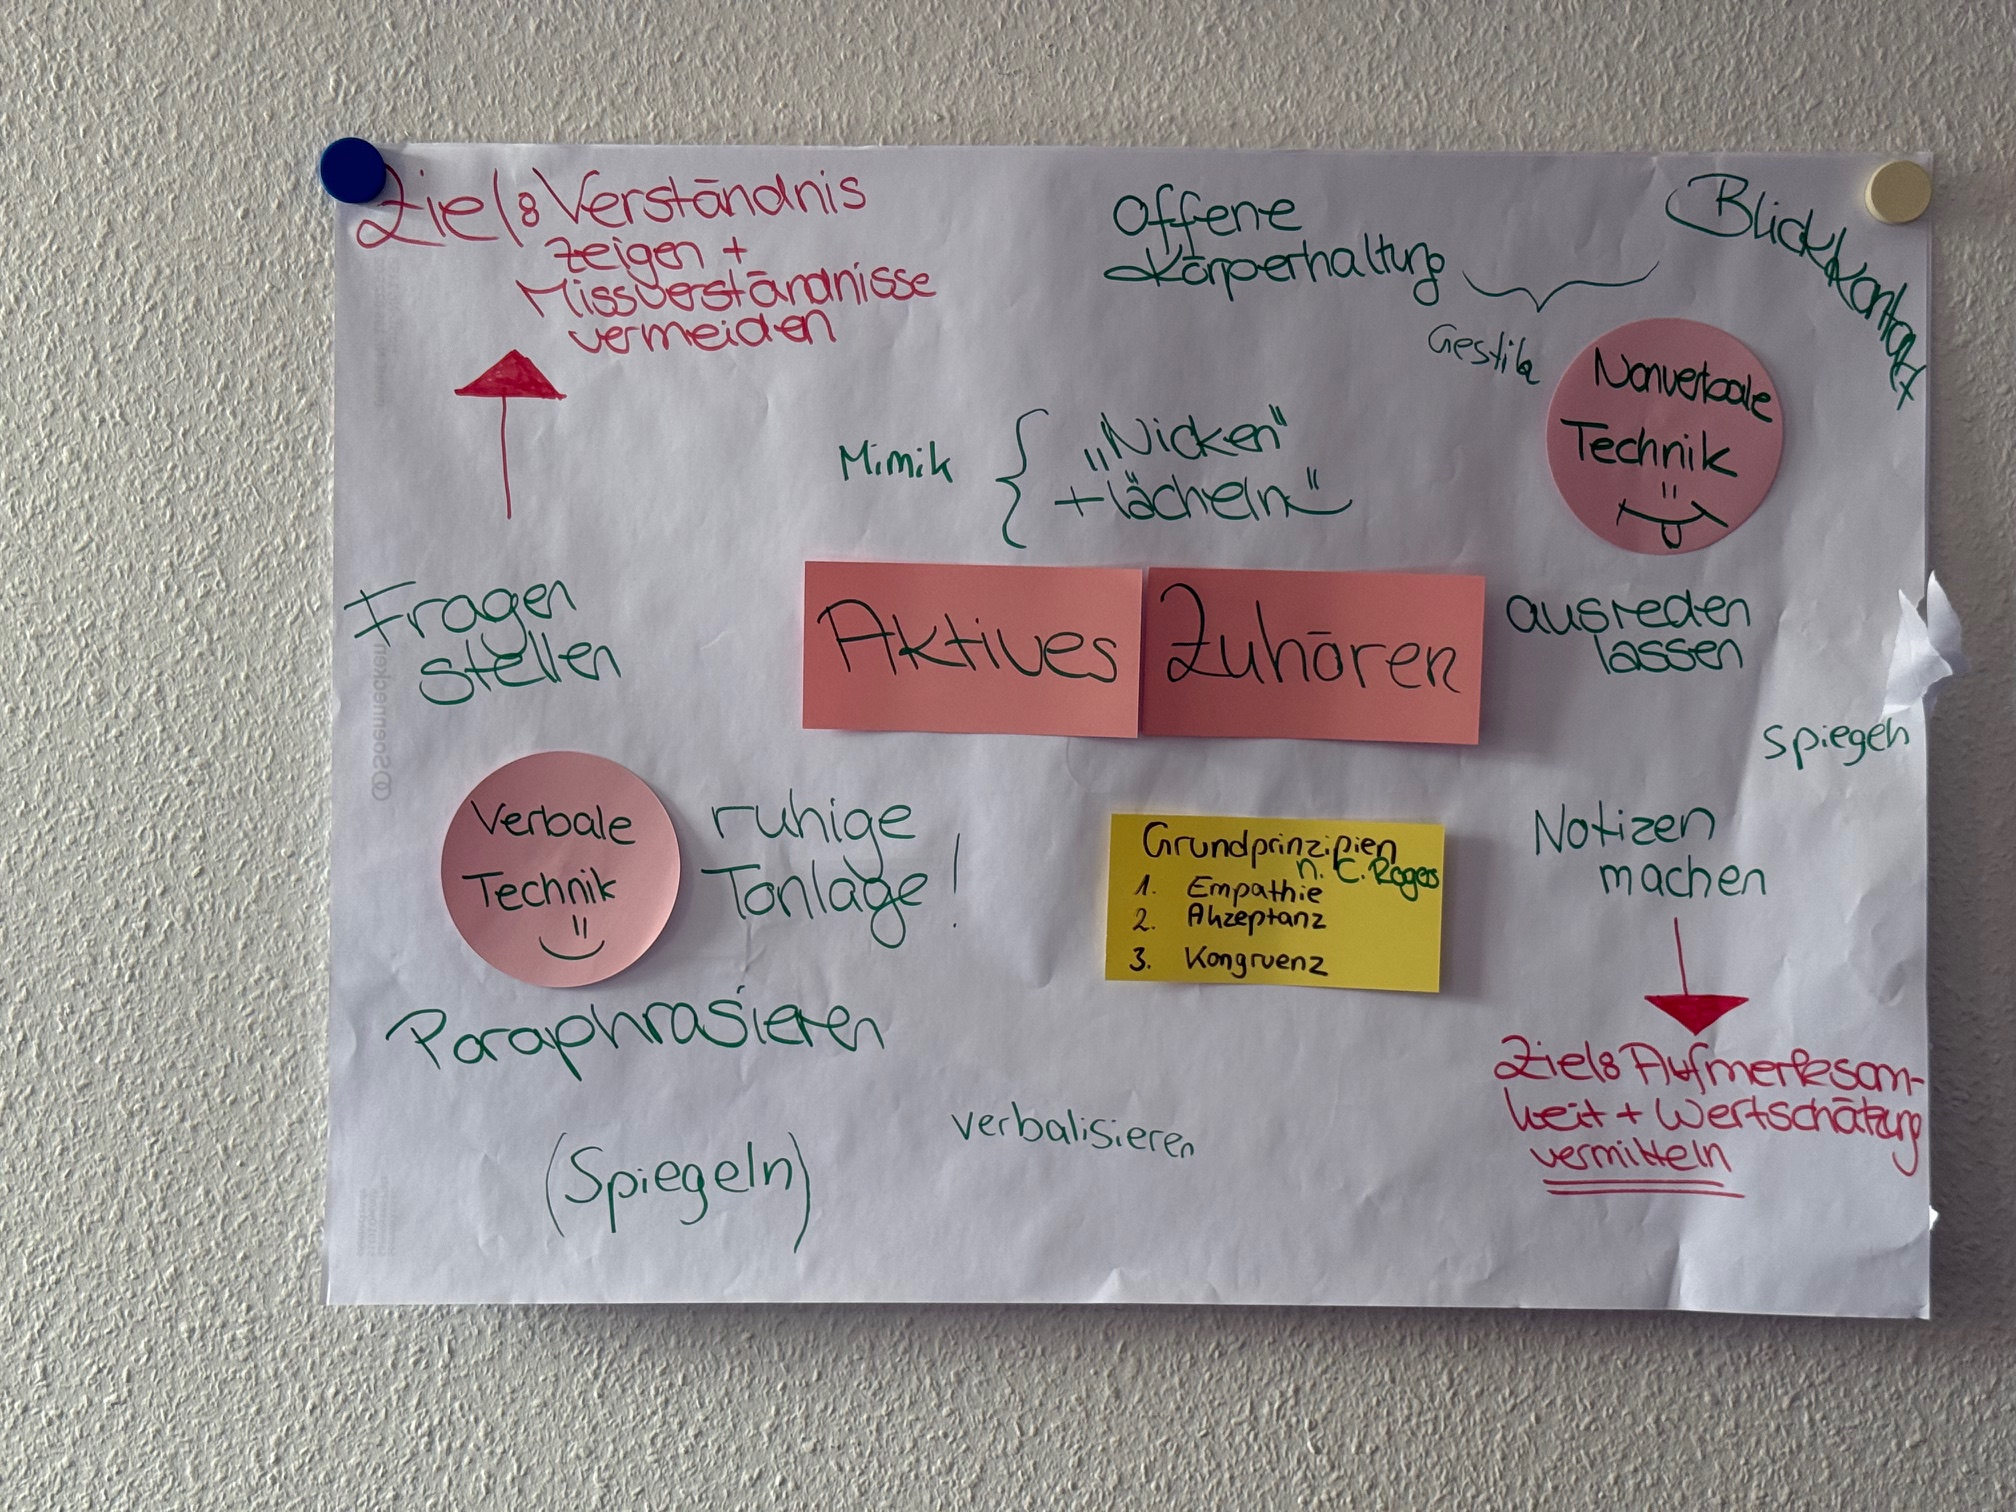 Ziel: Verständnis
zeigen +
Missverständnisse
vermeiden
Offene
Körperhaltung
Blickkontakt
Gestik
Nonverbale
Technik
Mimik
„Nicken"
+ lächeln"
Fragen
stellen
Aktives Zuhören
ausreden
lassen
spiegeln
Verbale
Technik
ruhige
Tonlage!
Grundprinzipien
n. C. Rogers
1. Empathie
2. Akzeptanz
3. Kongruenz
Notizen
machen
Paraphrasieren
(Spiegeln)
verbalisieren
Ziel: Aufmerksam-
keit + Wertschätzung
vermitteln
Soennecken